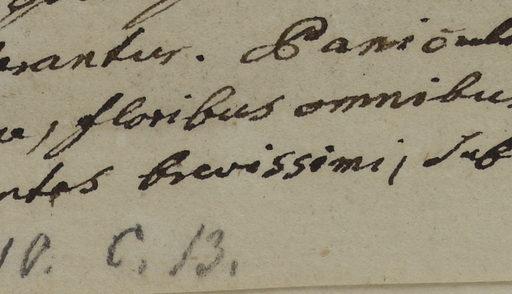 erantur. Panicul
floribus omnibus
brevissimi, sub
10. C. 13.